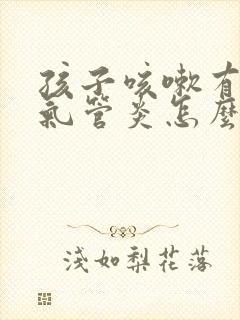 孩子咳嗽有
氣管炎怎麼
淺如梨花落